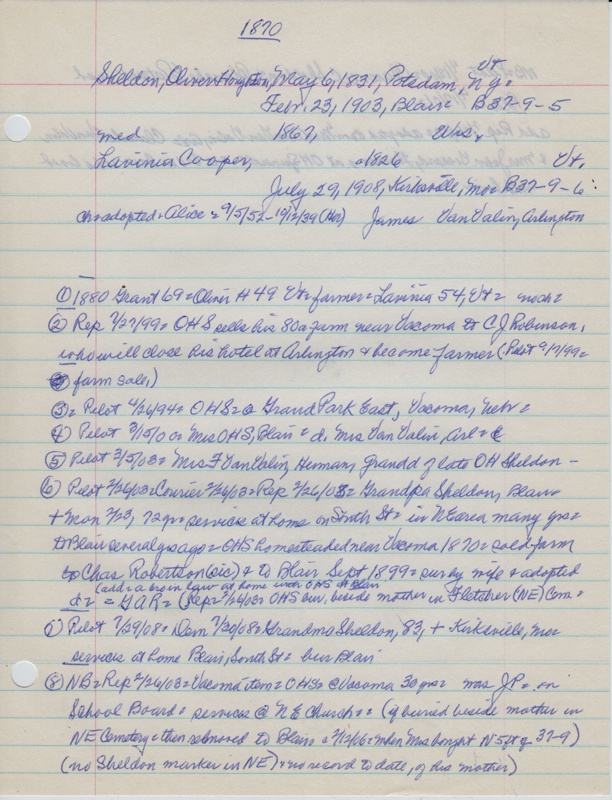 1870
Vt
Sheldon, Oliver Houghton, May 6, 1831, Potsdam, N.Y. =
Febr. 23, 1903, Blair = B37-9-5
med 1867, Wis;
Lavinia Cooper, c1826 Vt,
July 29, 1908, Kirksville, Mo = B37-9-6 =
ch = adopted = Alice = 9/5/52-10/12/39 (Her) James Van Valin, Arlington
① 1880 Grant 69 = Oliver H 49 Vt = farmer = Lavinia 54, Vt = no ch =
② Rep 7/27/99 = OHS sells his 80a farm near Vacoma to C J Robinson,
who will close his hotel at Arlington & become farmer (Pilot 9/17/99 =
farm sale,)
③ = Pilot 4/26/94 = OHS = @ Grand Park East, Vacoma, Nebr =
④ Pilot 3/15/00 = Mrs OHS, Blair = d. Mrs Van Valin, Arl =
⑤ Pilot 3/5/03 = Mrs F Van Valin, Herman, grand d of late OH Sheldon -
⑥ Pilot 2/26/03 = Courier 2/26/03 = Rep 2/26/03 = Grandpa Sheldon, Blair =
+ Mon 2/23, 72 yr = services at home on South St = in NE area many yrs =
to Blair several yrs ago = OHS homesteaded near Vacoma 1870 = sold farm
to Chas Robertson (sic) & to Blair Sept 1899 = sur by wife & adopted
(add = a bro in law at home with OHS at Blair
d = = GAR = (Rep = 2/26/03 = OHS bur. beside mother in Fletcher (NE) Cem =
7) Pilot 7/29/08 = Dem 7/30/08 = Grandma Sheldon, 83, + Kirksville, Mo =
services at home Blair, South St = bur Blair
⑧ NB = Rep 2/26/03 = Vacoma item = OHS = @ Vacoma 30 yrs = was J P = on
School Board = services @ NE Church = = (if buried beside mother in
NE Cemetery = then removed to Blair = 7/2/16 = when Mrs bought N 5ft of 37-9)
(no Sheldon marker in NE) = no record to date, of his mother)